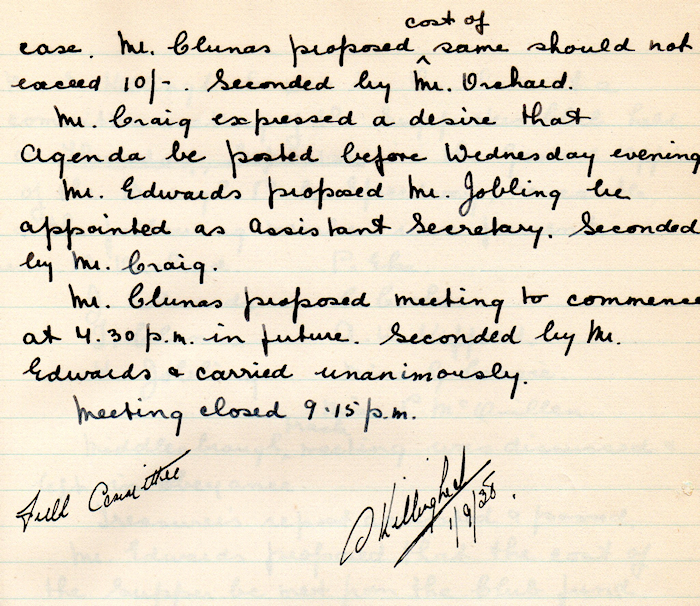 cost of
case. Mr. Clunas proposed ^ same should not
exceed 10/-. Seconded by Mr. Orchard.
Mr. Craig expressed a desire that
Agenda be posted before Wednesday evening
Mr. Edwards proposed Mr. Jobling be
appointed as Assistant Secretary. Seconded
by Mr. Craig.
Mr. Clunas proposed meeting to commence
at 4.30 p.m. in future. Seconded by Mr.
Edwards & carried unanimously.
Meeting closed 9.15 p.m.
Full Committee
1/9/38.